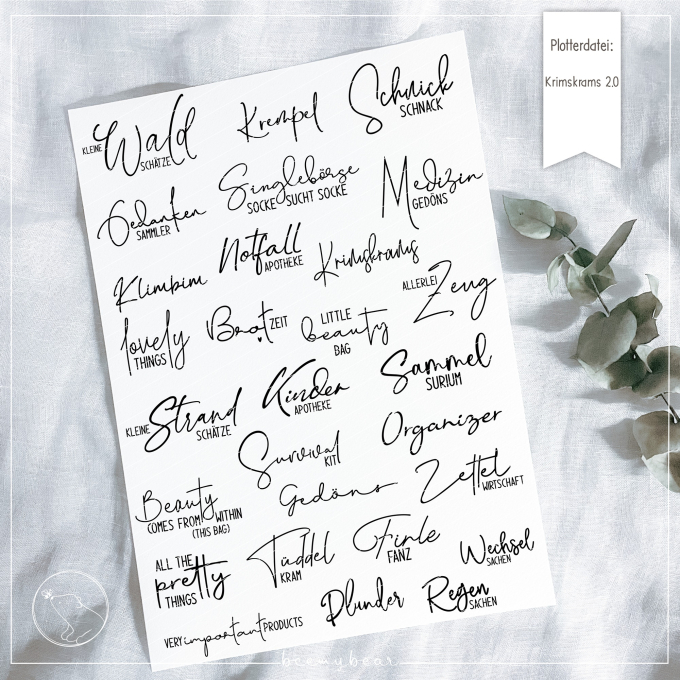 Plotterdatei:
Krimskrams 2.0
KLEINE Wald SCHÄTZE
Krempel
Schnick SCHNACK
Gedanken SAMMLER
Singlebörse
SOCKE SUCHT SOCKE
Medizin
GEDÖNS
Klimbim
Notfall
APOTHEKE
Krimskrams
ALLERLEI Zeug
lovely
THINGS
Brot ZEIT
LITTLE
beauty
BAG
KLEINE Strand SCHÄTZE
Kinder
APOTHEKE
Sammel
SURIUM
Survival
KIT
Organizer
Beauty
COMES FROM WITHIN
(THIS BAG)
Gedöns
Zettel
WIRTSCHAFT
ALL THE
pretty
THINGS
Tüddel
KRAM
Firle
FANZ
Wechsel
SACHEN
VERY important PRODUCTS
Plunder
Regen
SACHEN
beemybear